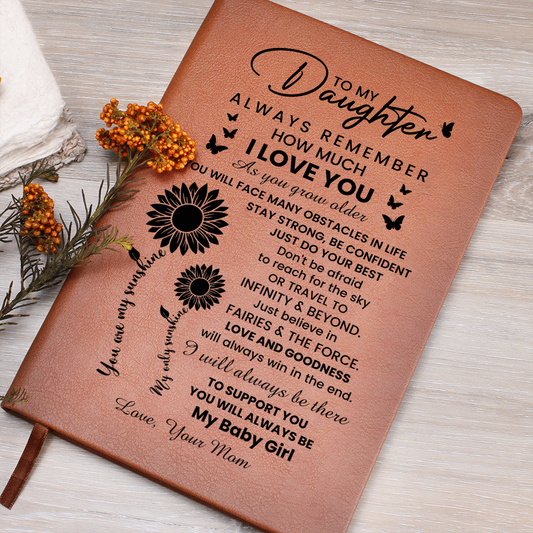 TO MY
Daughter
ALWAYS REMEMBER
HOW MUCH
I LOVE YOU
As you grow older
YOU WILL FACE MANY OBSTACLES IN LIFE
STAY STRONG, BE CONFIDENT
JUST DO YOUR BEST
Don't be afraid
to reach for the sky
OR TRAVEL TO
INFINITY & BEYOND.
Just believe in
FAIRIES & THE FORCE.
LOVE AND GOODNESS
will always win in the end.
I will always be there
TO SUPPORT YOU
YOU WILL ALWAYS BE
My Baby Girl
Love, Your Mom
You are my sunshine
My only sunshine